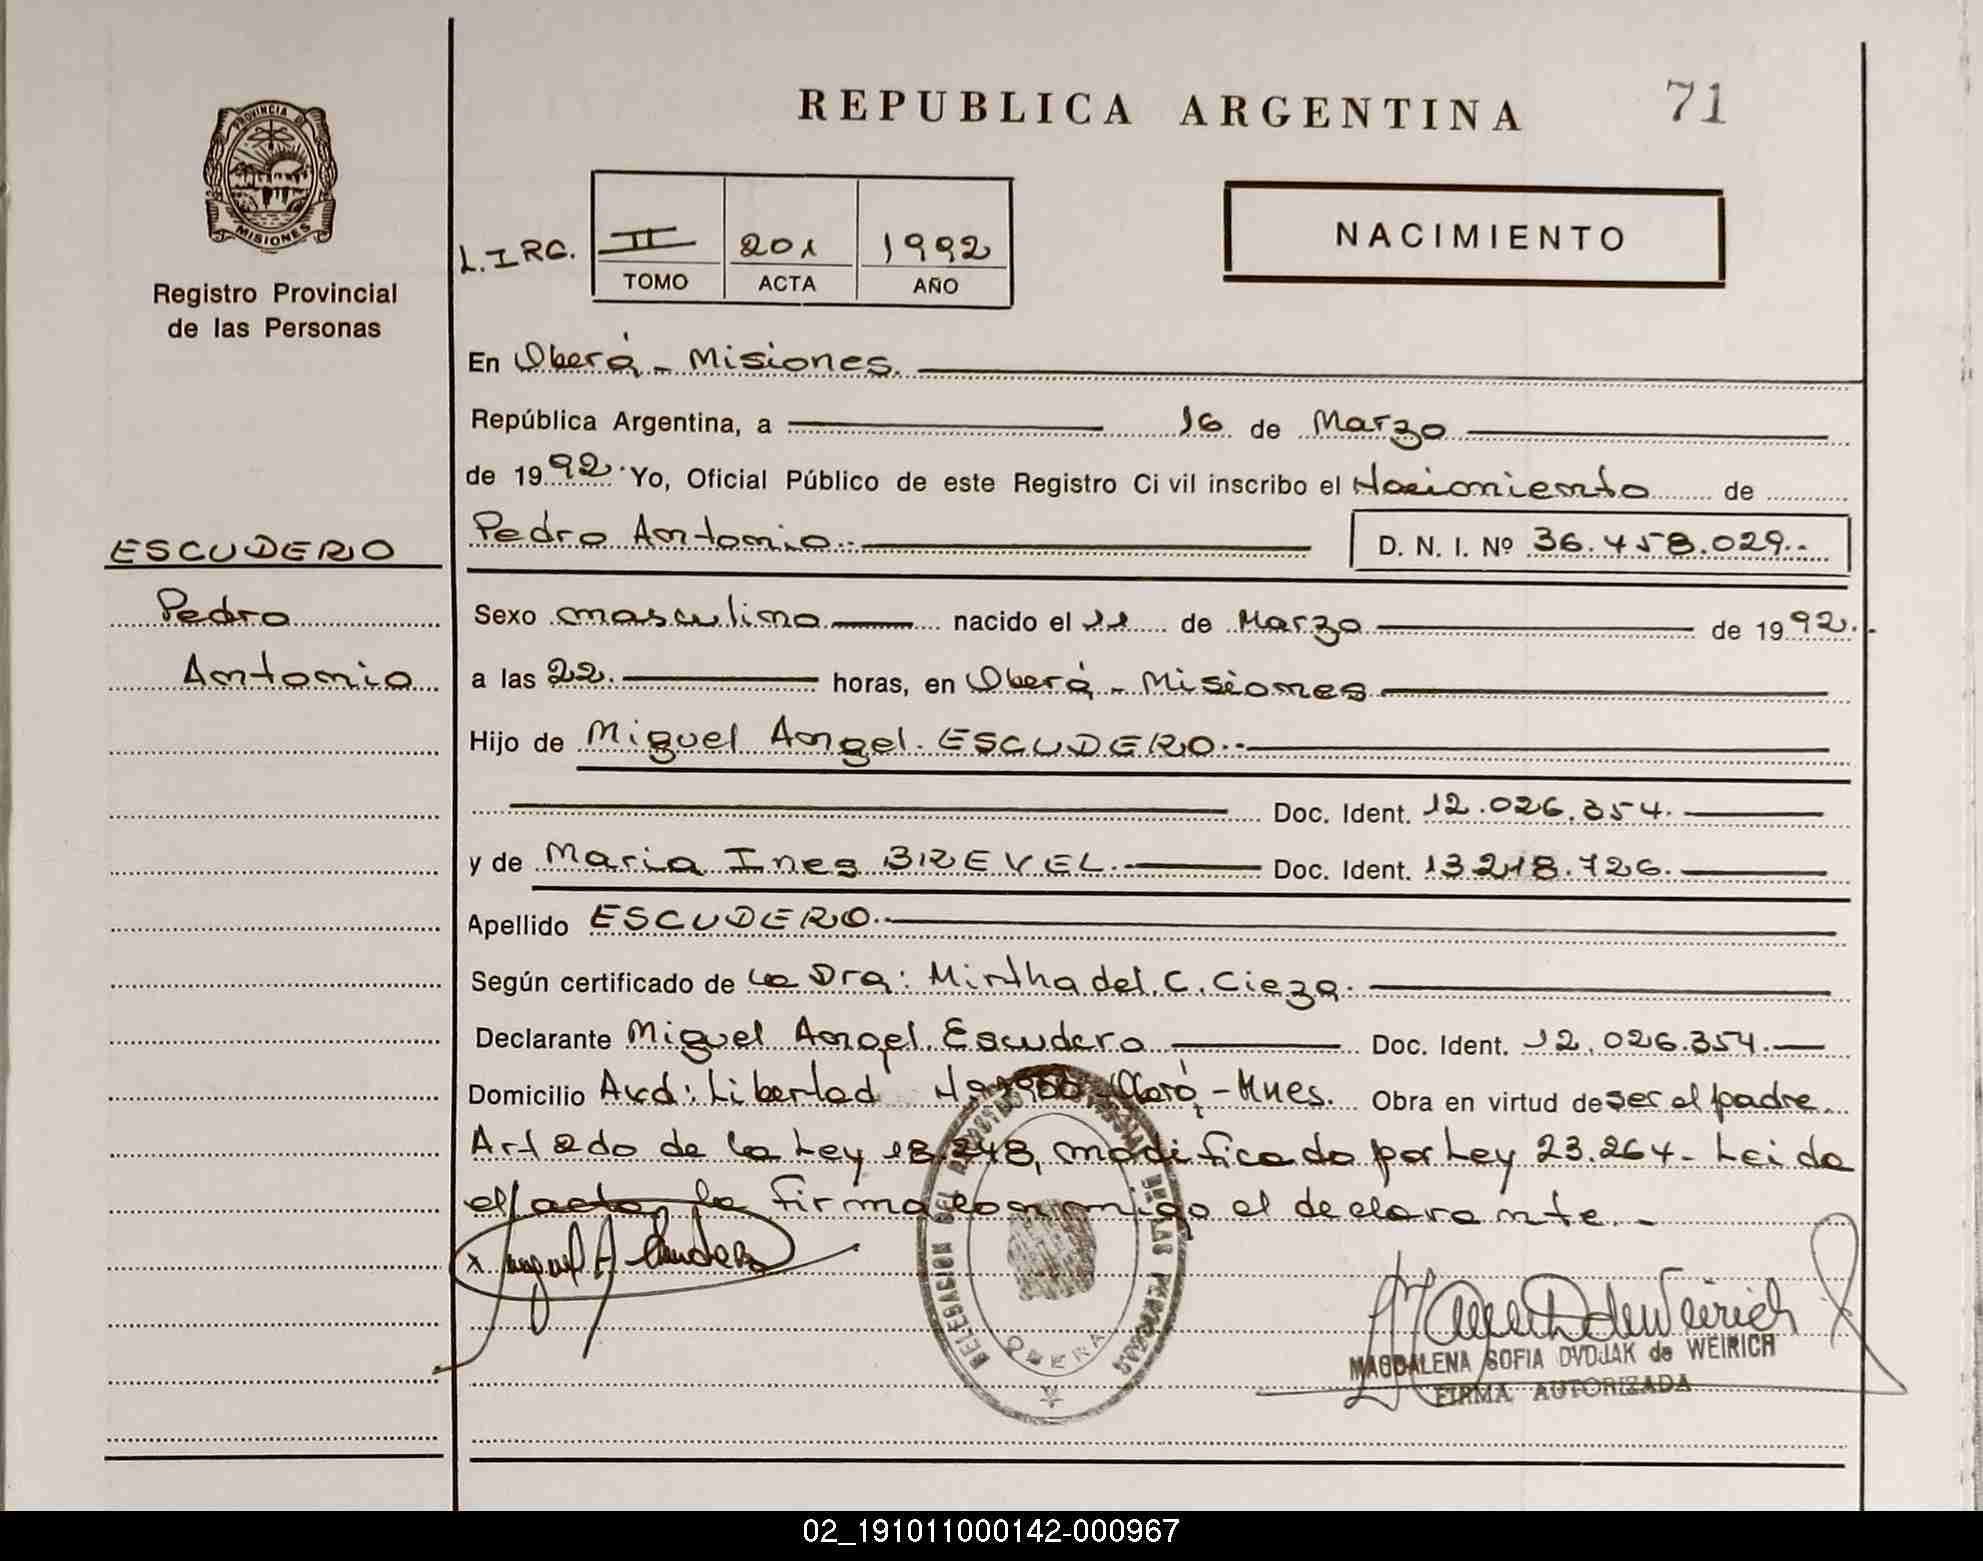 REPUBLICA ARGENTINA 71
PROVINCIA DE
MISIONES
Registro Provincial
de las Personas
L.I RC. II 201 1992
TOMO ACTA AÑO
NACIMIENTO
En Oberá - Misiones.
República Argentina, a 16 de Marzo
de 1992. Yo, Oficial Público de este Registro Ci vil inscribo el Nacimiento de
ESCUDERO
Pedro
Antonio
Pedro Antonio.- D. N. I. Nº 36.458.029.-
Sexo masculino nacido el 11 de Marzo de 1992.
a las 22. horas, en Oberá - Misiones
Hijo de Miguel Angel ESCUDERO.-
Doc. Ident. 12.026.354.
y de Maria Ines BREVEL. Doc. Ident. 13.218.726.
Apellido ESCUDERO.
Según certificado de la Dra: Mirtha del C. Cieza.
Declarante Miguel Angel Escudero Doc. Ident. 12.026.354.
Domicilio Avd: Libertad Oberá, - Mnes. Obra en virtud de ser el padre
Art 2do de la Ley 18.248, modificado por Ley 23.264 - Leida
el acta, la firma conmigo el declarante. -
x Miguel A Escudero
DELEGACION DEL REGISTRO DE LAS PERSONAS
OBERA
MAGDALENA SOFIA DVDJAK de WEIRICH
FIRMA AUTORIZADA
02_191011000142-000967